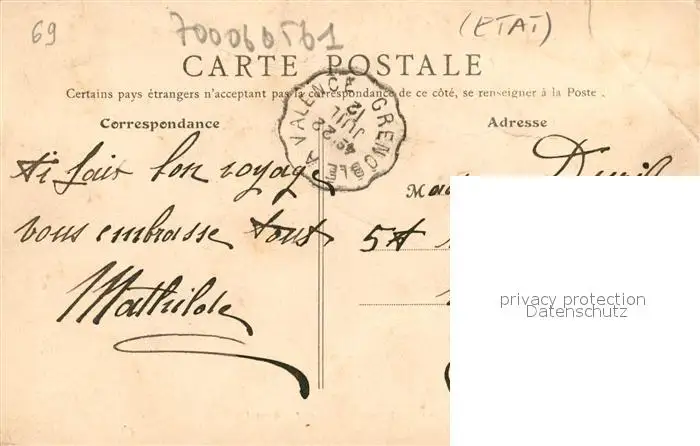 69
700060561
(ETAT)
CARTE POSTALE
Certains pays étrangers n'acceptant pas la correspondance de ce côté, se renseigner à la Poste.
Correspondance
Adresse
GRENOBLE A VALENCE
22
JUIL
12
ai fait bon voyage
vous embrasse tous
Mathilde
privacy protection
Datenschutz